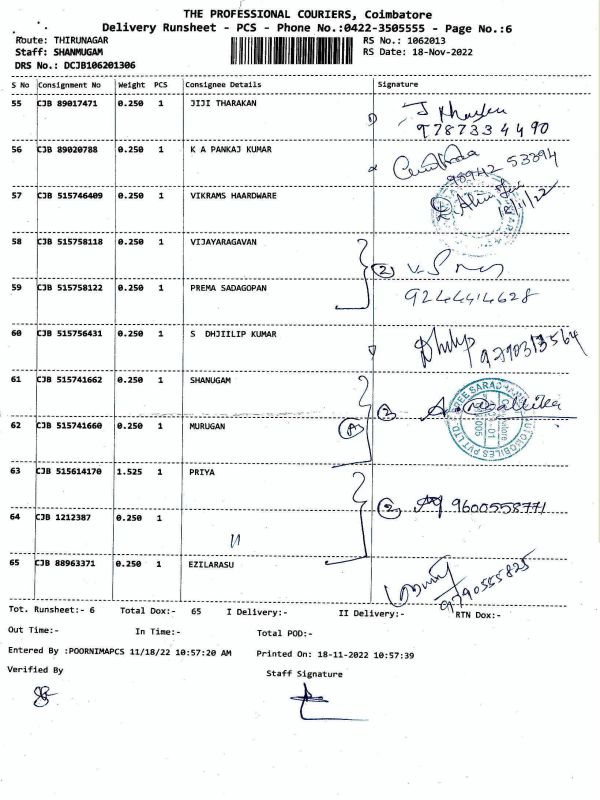 THE PROFESSIONAL COURIERS, Coimbatore
Delivery Runsheet - PCS - Phone No.:0422-3505555 - Page No.:6
Route: THIRUNAGAR
RS No.: 1062013
Staff: SHANMUGAM
RS Date: 18-Nov-2022
DRS No.: DCJB106201306
S No Consignment No Weight PCS Consignee Details Signature
55 CJB 89017471 0.250 1 JIJI THARAKAN
9787334490
56 CJB 89020788 0.250 1 K A PANKAJ KUMAR
98942 53894
57 CJB 515746409 0.250 1 VIKRAMS HAARDWARE
18/11/22
58 CJB 515758118 0.250 1 VIJAYARAGAVAN
2
59 CJB 515758122 0.250 1 PREMA SADAGOPAN
9244414628
60 CJB 515756431 0.250 1 S DHJIILIP KUMAR
61 CJB 515741662 0.250 1 SHANUGAM
2
62 CJB 515741660 0.250 1 MURUGAN
AUTOMOBILES PVT LTD.
63 CJB 515614170 1.525 1 PRIYA
2 9600558771
64 CJB 1212387 0.250 1
65 CJB 88963371 0.250 1 EZILARASU
9790555825
Tot. Runsheet:- 6 Total Dox:- 65 I Delivery:- II Delivery:- RTN Dox:-
Out Time:- In Time:- Total POD:-
Entered By :POORNIMAPCS 11/18/22 10:57:20 AM Printed On: 18-11-2022 10:57:39
Verified By
Staff Signature